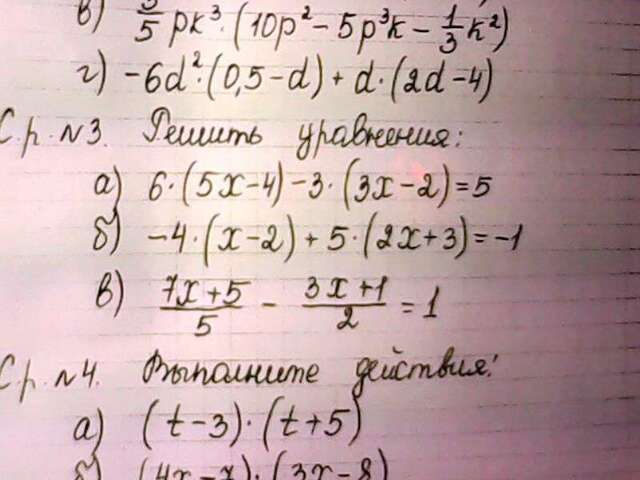 в) 3/5 pk³·(10p² − 5p³k − 1/3 k²)
г) −6d²·(0,5 − d) + d·(2d − 4)
С.р. №3. Решить уравнения:
а) 6·(5x − 4) − 3·(3x − 2) = 5
б) −4·(x − 2) + 5·(2x + 3) = −1
в) (7x + 5)/5 − (3x + 1)/2 = 1
С.р. №4. Выполните действия:
а) (t − 3)·(t + 5)
б) (4x − 7)·(3x − 8)